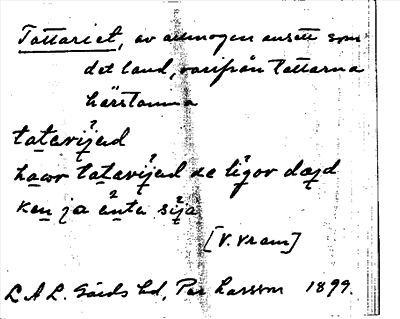 Tattariet, av allmogen ansett som
det land, varifrån tattarna
härstamma
tatarijed
hawr tatarijed se ligor dæjd
ken ja änte sija
[V. Vram]
L A L. Gårds hd, Per Larsson 1899.